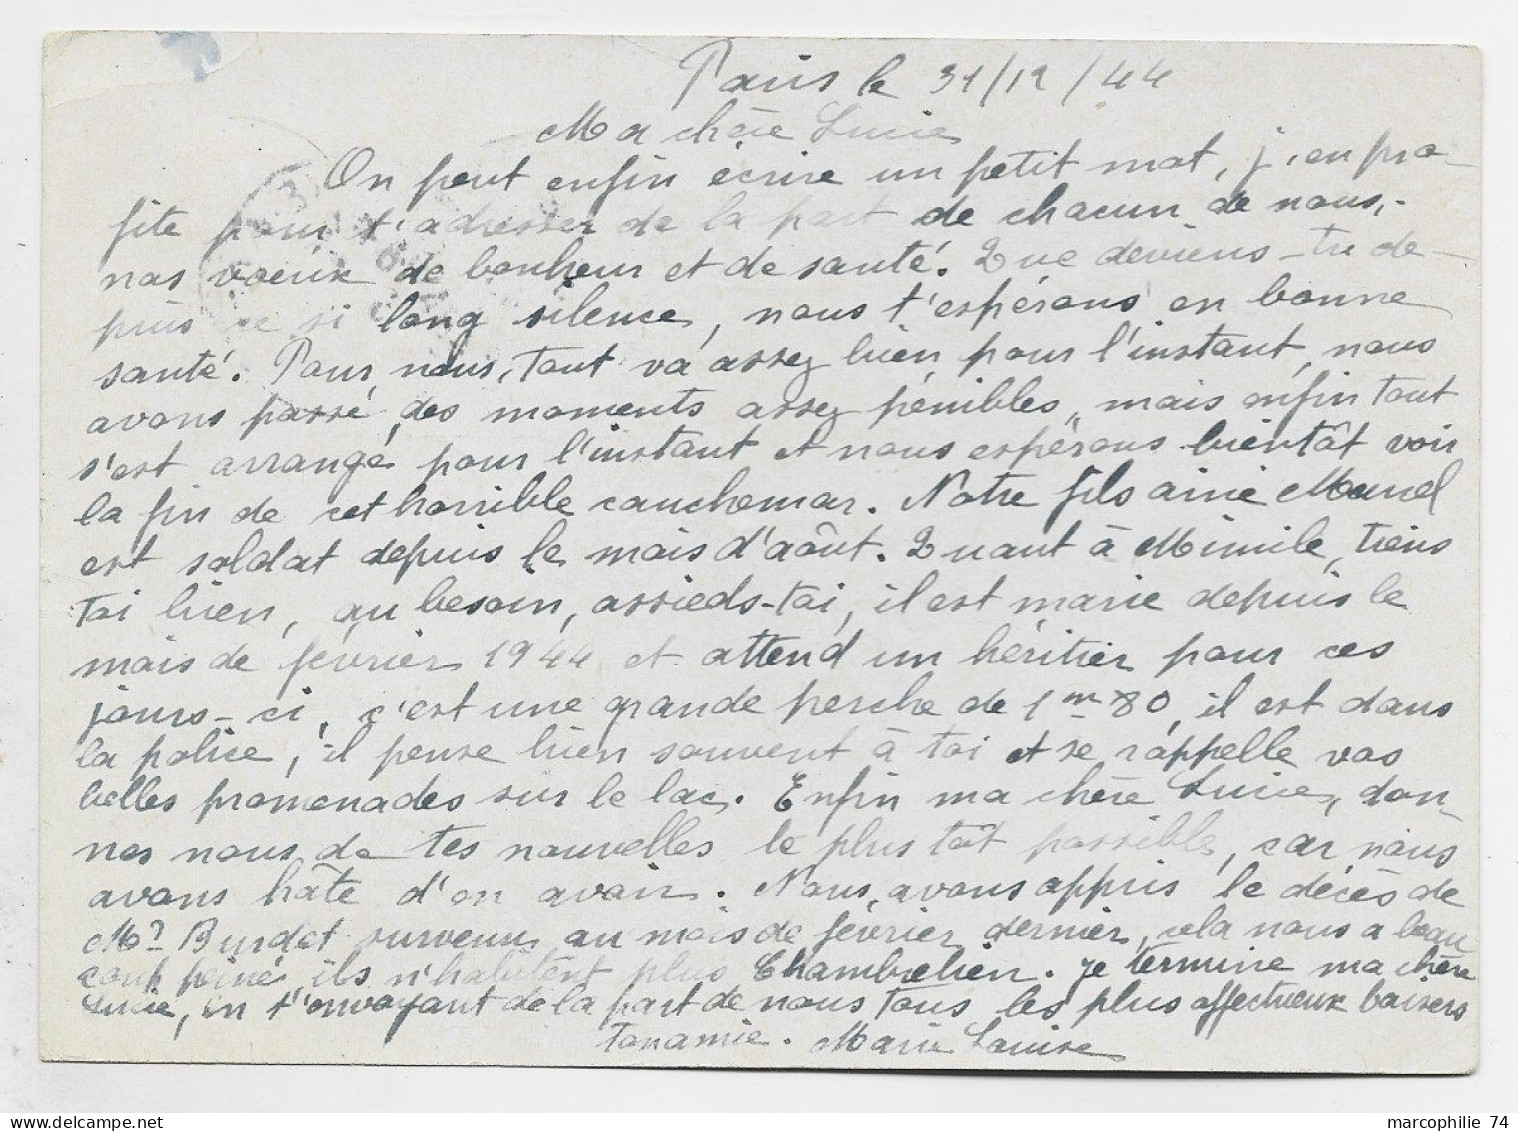 Paris le 31/12/44
Ma chère Lucie
On peut enfin écrire un petit mot, j'en pro-
fite pour t'adresser de la part de chacun de nous,
nos voeux de bonheur et de santé. Que deviens-tu de-
puis ce si long silence, nous t'espérons en bonne
santé. Pour nous, tout va assez bien pour l'instant, nous
avons passé des moments assez pénibles, mais enfin tout
s'est arrangé pour l'instant et nous espérons bientôt voir
la fin de cet horrible cauchemar. Notre fils ainé Marcel
est soldat depuis le mois d'août. Quant à Mimile, tiens
toi bien, au besoin, assieds-toi, il est marié depuis le
mois de février 1944 et attend un héritier pour ces
jours-ci, c'est une grande perche de 1m80, il est dans
la police, il pense bien souvent à toi et se rappelle vos
belles promenades sur le lac. Enfin ma chère Lucie, don-
nes nous de tes nouvelles le plus tôt possible, car nous
avons hâte d'en avoir. Nous avons appris le décès de
Mr Burdet survenu au mois de février dernier, cela nous a beau
coup peiné, ils n'habitent plus Chambrelien. Je termine ma chère
Lucie, en t'envoyant de la part de nous tous les plus affectueux baisers
ton amie. Marie Louise
marcophilie 74